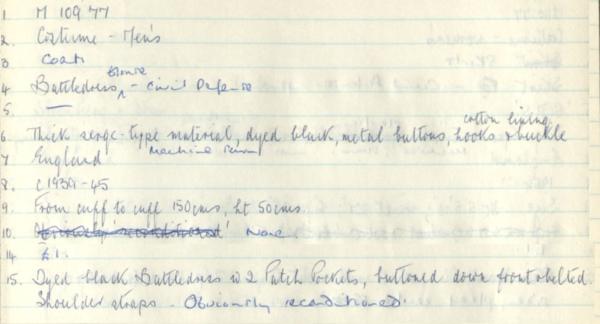 1. M 109'77
2. Costume - Men's
3 Coats
4 Battledress ^ blouse - Civil Defense
5. —
6. Thick serge-type material, dyed black, metal buttons, hooks & buckle cotton lining
7 England Machine sewn
8. c1939-45
9. From cuff to cuff 150cms, ht 50cms
10. None
14. £1.
15. Dyed black Battledress w 2 Patch Pockets, buttoned down front & belted.
Shoulder straps - Obviously reconditioned.